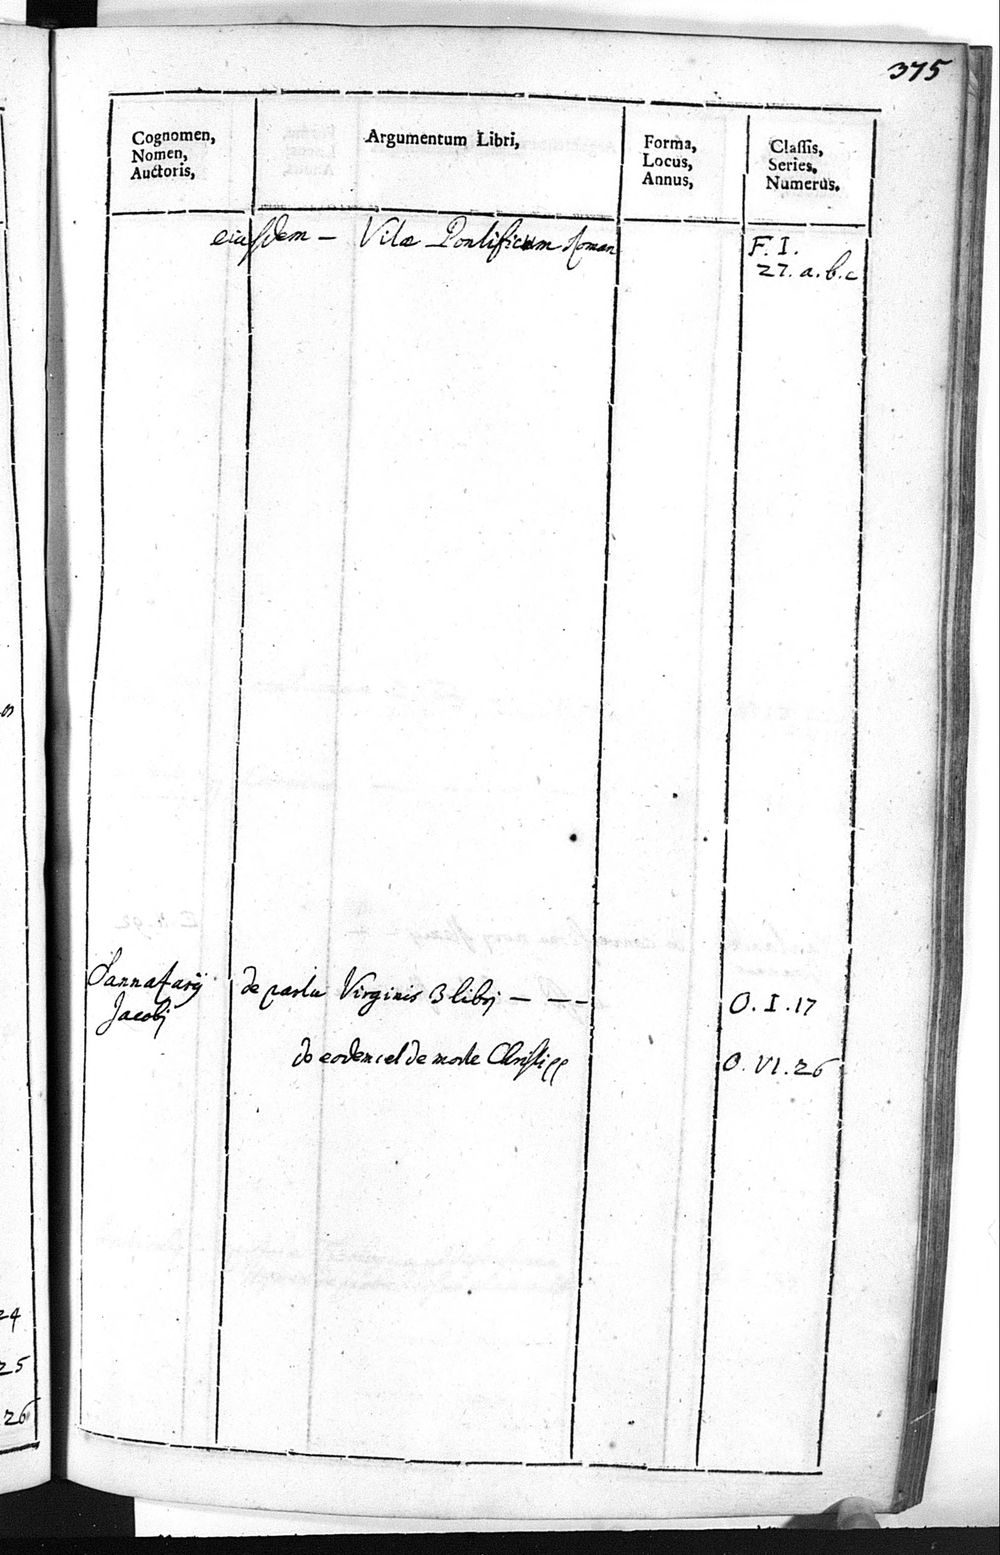 375
Cognomen,
Nomen,
Auctoris,
Argumentum Libri,
Forma,
Locus,
Annus,
Classis,
Series,
Numerus.
eiusdem – Vitæ Pontificum Roman
F. I.
27. a. b. c
Sannasarij
Jacobi
de partu Virginis 3 libri – – –
O. I. 17
de eodem et de morte Christi
O. VI. 26
24
25
26